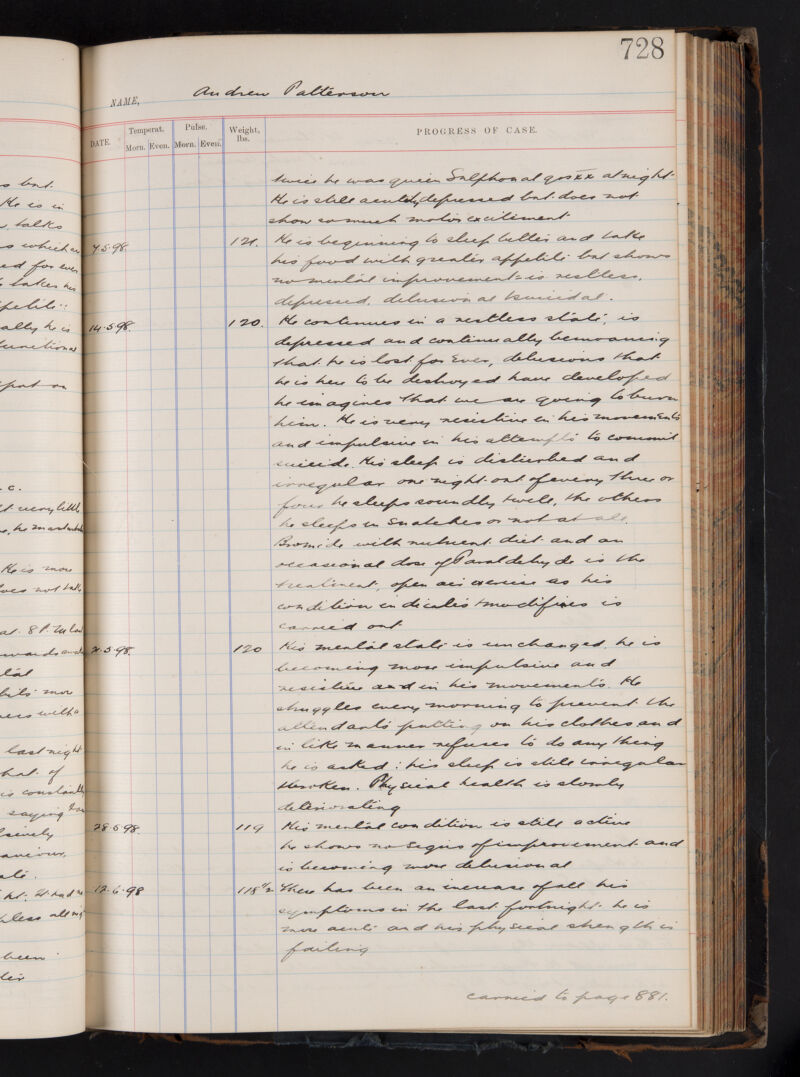 728
NAME, Andrew Patterson
DATE. Temperat. Pulse. Weight, lbs. PROGRESS OF CASE.
Morn. Even. Morn. Even.
twice he was given Sulphonal grs xx at night.
He is still acutely depressed but does not
show so much motor excitement
7.5.98. 121. He is beginning to sleep better and take
his food with greater appetite but shows
no mental improvement is restless,
depressed, delusional & suicidal.
14.5.98. 120. He continues in a restless state, is
depressed and continually bemoaning
that he is lost for ever, delusions that
he is here to be destroyed have developed
he imagines that we are going to burn
him. He is very resistive in his movements
and impulsive in his attempts to commit
suicide. His sleep is disturbed and
irregular one night out of every three or
four he sleeps soundly & well, the others
he sleeps in snatches or not at all.
Bromide with nutrient diet and an
occasional dose of Paraldehyde is the
treatment, open air exercise as his
condition indicates & modifies is
carried out
21.5.98. 120 His mental state is unchanged. he is
becoming more impulsive and
resistive and in his movements. He
struggles every morning to prevent the
attendants putting on his clothes and
in like manner refuses to do any thing
he is asked: his sleep is still irregular
& broken. Physical health is slowly
deteriorating
28.5.98. 119 His mental condition is still active
he shows no signs of improvement and
is becoming more delusional
12.6.98 118 1/2 There has been an increase of all his
symptoms in the last fortnight. he is
more acute and his physical strength is
failing
carried to page 881.
but.
He is in
talks
for ever
ally he is
. c.
very little
He is more
does not talk
at. 8 P.M.
more
last night
that. of
is constantly
saying
been